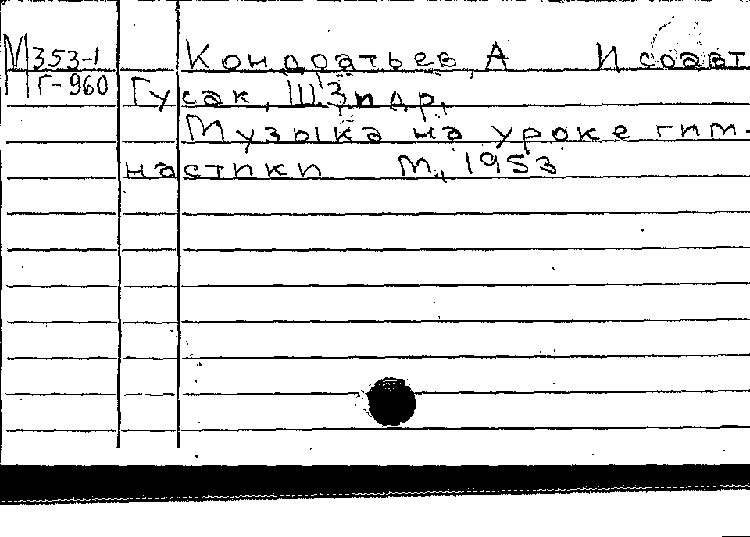 М353-1 Кондратьев, А И соавт
Г-960 Гусак, Ш.З. и др.
Музыка на уроке гим-
настики М., 1953